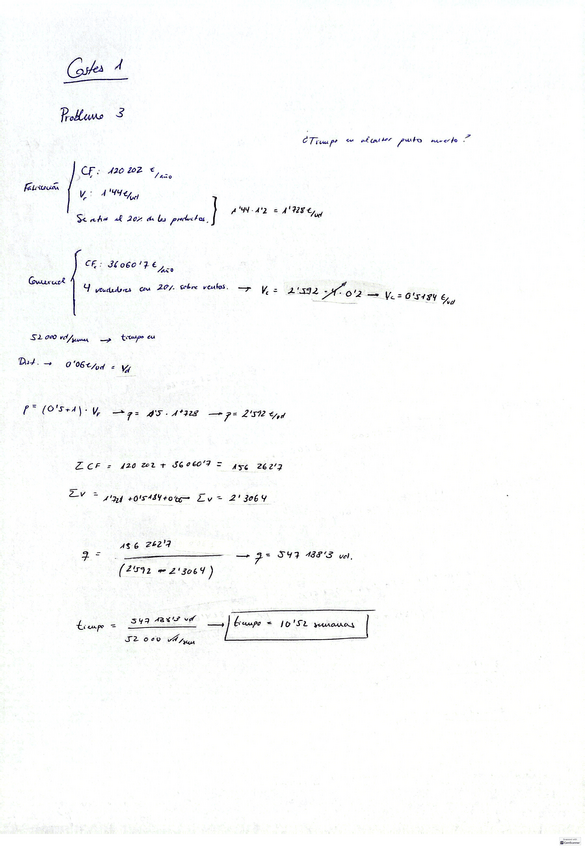 Costes 1
Problema 3
¿Tiempo en alcanzar punto muerto?
Fabricación
CF: 120 202 €/año
Vf: 1'44 €/ud
Se retira el 20% de los productos.
1'44 · 1'2 = 1'728 €/ud
Comercial
CF: 36060'7 €/año
4 vendedores con 20% sobre ventas. → Vc = 2'592 · 4 · 0'2 → Vc = 0'5184 €/ud
52 000 ud/semana → tiempo en
Dist. → 0'06 €/ud = Vd
p = (0'5+1) · Vf → p = 1'5 · 1'728 → p = 2'592 €/ud
Σ CF = 120 202 + 36060'7 = 156 262'7
Σv = 1'728 + 0'5184 + 0'06 → Σv = 2'3064
q = 156 262'7 / (2'592 - 2'3064) → q = 547 138'3 ud.
tiempo = 547 138'3 ud / 52 000 ud/sem → tiempo = 10'52 semanas